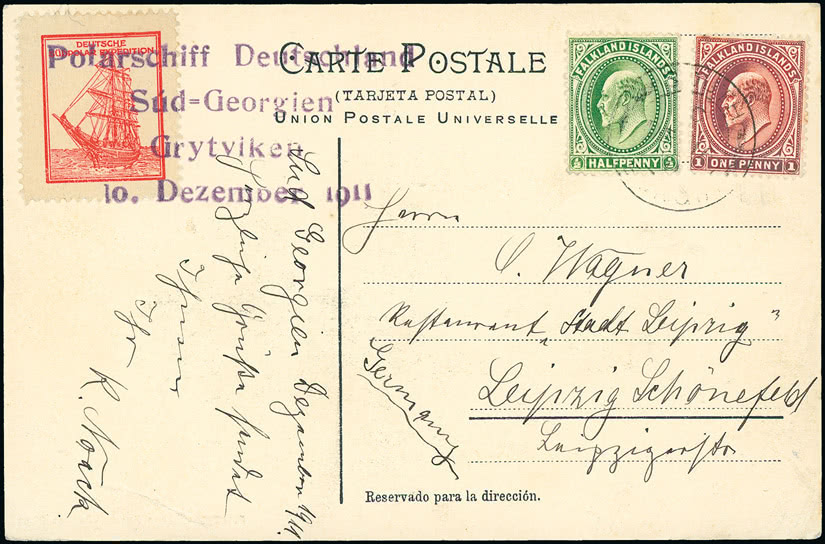 DEUTSCHE
SÜDPOLAR EXPEDITION
Polarschiff Deutschland
Süd=Georgien
Grytviken
10. Dezember 1911
CARTE POSTALE
(TARJETA POSTAL)
UNION POSTALE UNIVERSELLE
FALKLAND ISLANDS
½ HALFPENNY ½
FALKLAND ISLANDS
1 ONE PENNY 1
Süd Georgien Dezember 1911.
Herzliche Grüße sendet
Ihnen
Ihr
R. Noack
Herrn
O. Wagner
Restaurant „Stadt Leipzig"
Leipzig Schönefeld
Leipzigerstr
Germany
Reservado para la dirección.